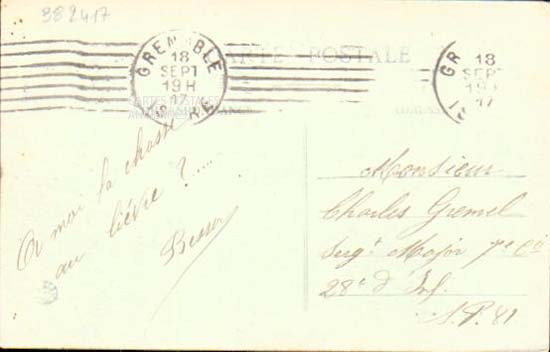 382417
CARTE POSTALE
GRENOBLE
18
SEPT
19H
17
GR
18
SEPT
19
17
A moi la chasse
au lièvre ?....
Besson
Monsieur
Charles Gremel
Serg.t Major 7e Cie
28e d'Inf.
S.P. 41